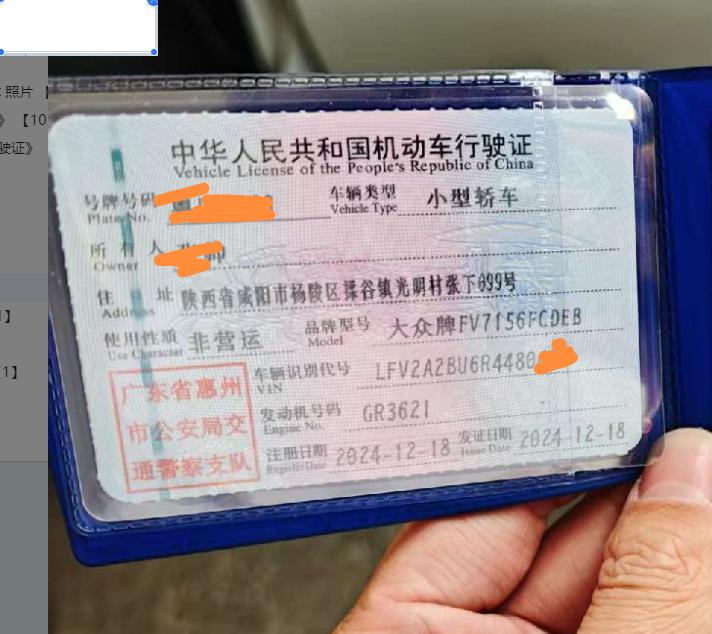 照片 【
》 【10
驶证》
】
1】
中华人民共和国机动车行驶证
Vehicle License of the People's Republic of China
号牌号码 车辆类型 小型轿车
Plate No. Vehicle Type
所有人
Owner
住址 陕西省咸阳市杨陵区揉谷镇光明村张下099号
Address
使用性质 非营运 品牌型号 大众牌FV7156FCDEB
Use Character Model
广东省惠州
市公安局交
通警察支队
车辆识别代号 LFV2A2BU6R4480
VIN
发动机号码 GR3621
Engine No.
注册日期 2024-12-18 发证日期 2024-12-18
Register Date Issue Date